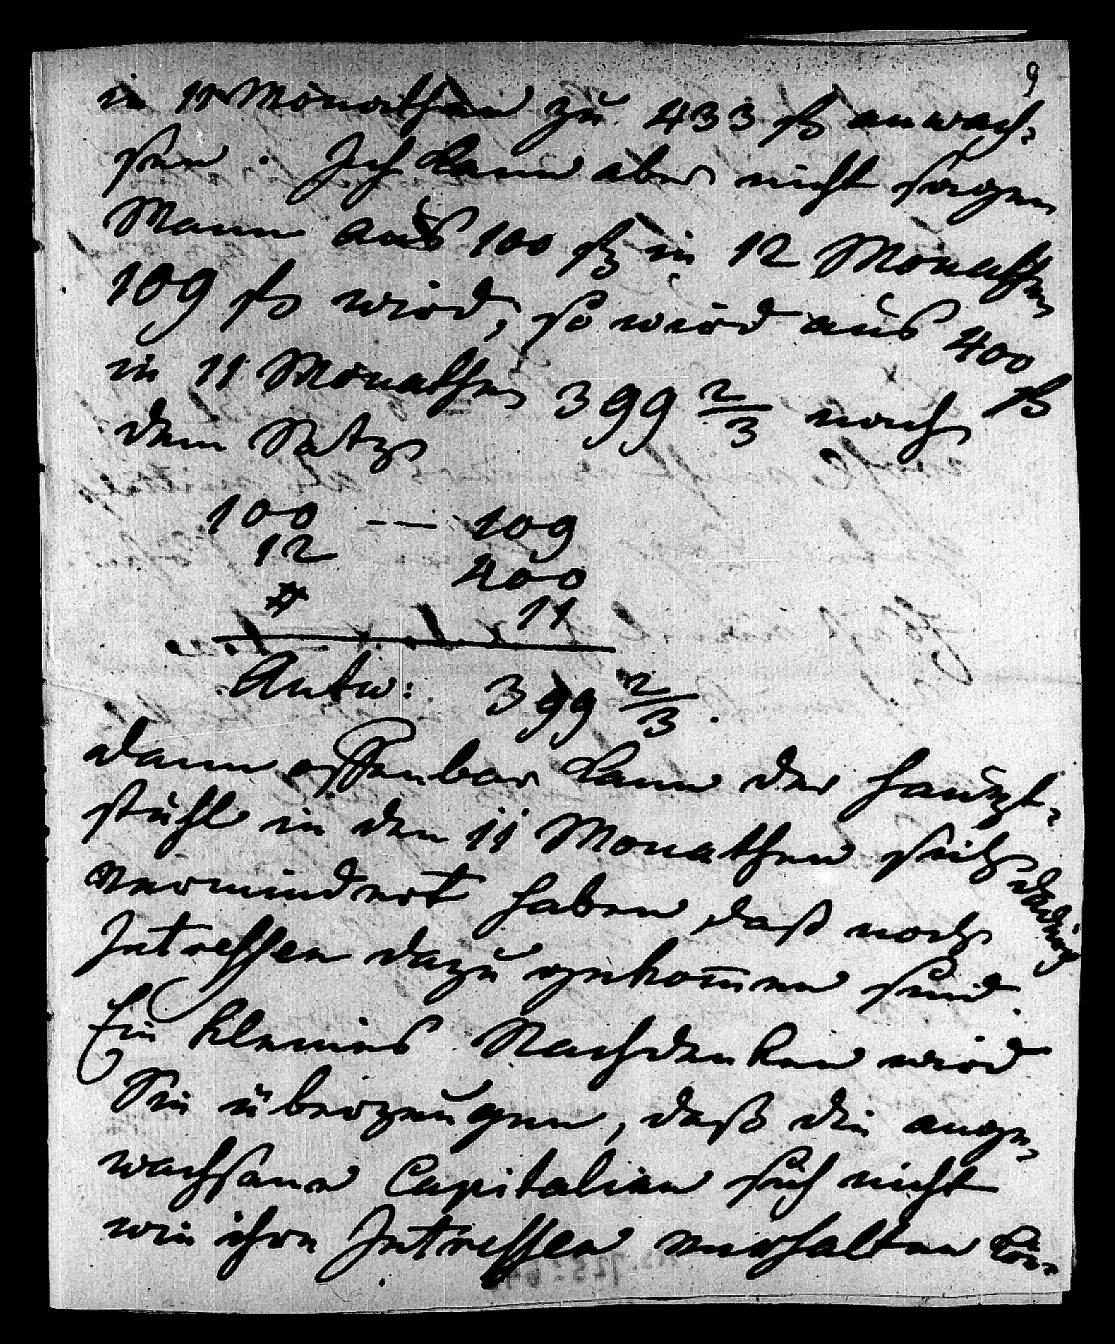 9
in 11 Monathen zu 433 fl anwach-
sen. Ich kann aber nicht sagen
Wann aus 100 fl in 12 Monathen
109 fl wird, so wird aus 400 fl
in 11 Monathen 399 2/3 nach
dem Satz
100 -- 109
12 400
11
Antw: 399 2/3.
dann offenbar kann der Haupt-
stuhl in den 11 Monathen sich dadurch
vermindert haben daß noch
Intressen dazu gekom̄en sind.
Ein kleines Nachdenken wird
Sie überzeugen, daß die ange-
wachsene Capitalien sich nicht
wie ihre Intressen verhalten kön-